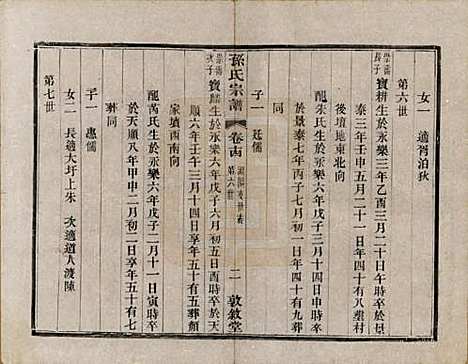 女一　適胥泊狄
第六世
崇福長子　寶耕生於永樂三年乙酉三月二十日午時卒於景
泰三年壬申五月二十一日享年四十有八葬村
後墳地東北向
配朱氏生於永樂六年戊子三月十四日申時卒
於景泰七年丙子七月初一日年四十有九
同
子一　廷儒
孫氏宗譜　卷十四　第六世　二　敦敘堂
次子　寶麟生於永樂六年戊子六月初五日酉時卒於天
順六年壬午三月十四日享年五十有五葬顏
家墳西南向
配芮氏生於永樂六年戊子二月十一日寅時卒
於天順八年甲申二月初二日享年五十有七
葬同
子一　惠儒
女二　長適大圩上朱　次適道人渡陳
第七世